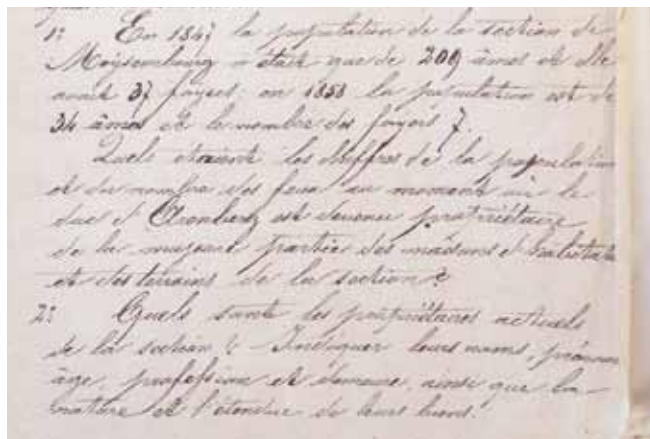 1: En 1847 la population de la section de
Meysembourg n'était que de 209 âmes et elle
avait 37 foyers, en 1858 la population est de
34 âmes et le nombre des foyers 7.
Quels étaient les chiffres de la population
et du nombre des feux au moment où le
duc d'Arenberg est devenu propriétaire
de la majeure partie des maisons d'habitation
et des terrains de la section?
2: Quels sont les propriétaires actuels
de la section? Indiquer leurs noms, prénoms
âge, profession et domaine, ainsi que la
nature et l'étendue de leurs biens.